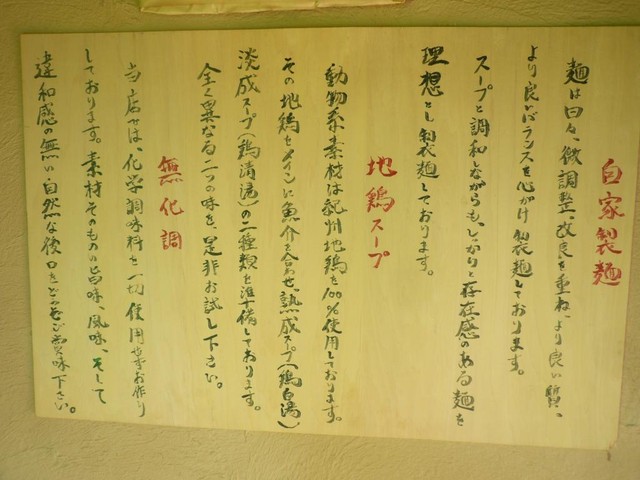 自家製麺
麺は日々、微調整、改良を重ね、より良い質、
より良いバランスを心がけ製麺しております。
スープと調和しながらも、しっかりと存在感のある麺を
理想とし製麺しております。
地鶏スープ
動物系素材は紀州地鶏を100%使用しております。
その地鶏をメインに魚介を合わせ、熟成スープ(鶏白湯)
淡成スープ(鶏清湯)の二種類を準備しております。
全く異なる二つの味を、是非お試し下さい。
無化調
当店では、化学調味料を一切使用せずお作り
しております。素材そのものの旨味、風味、そして
違和感の無い自然な後口をどうぞご賞味下さい。